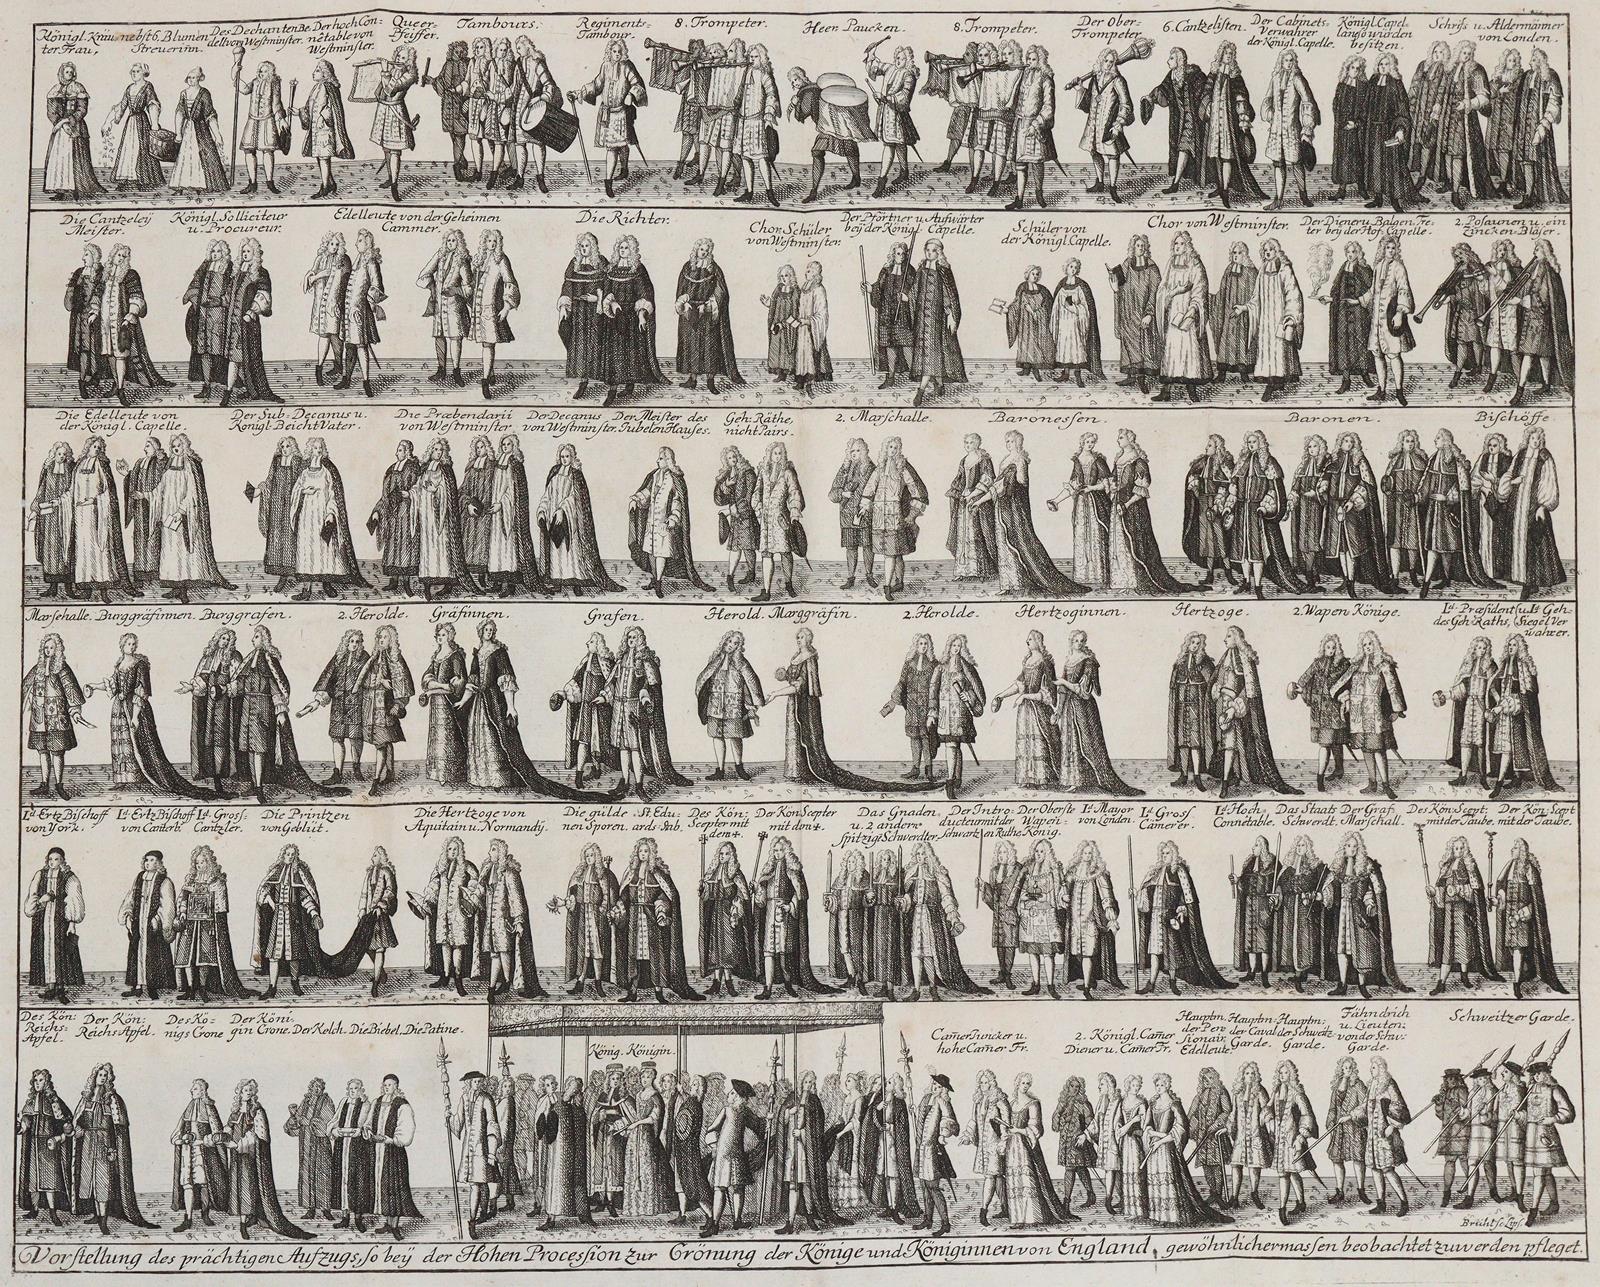 Königl. Kräu-
ter Frau,
nebst 6. Blumen
Streuerinn.
Des Dechanten Be-
dell von Westminster.
Der hoch Con-
netable von
Westminster.
Queer-
Pfeiffer.
Tambours.
Regiments-
Tambour.
8. Trompeter.
Heer Paucken.
8. Trompeter.
Der Ober-
Trompeter
6. Cantzelisten.
Der Cabinets-
Verwahrer
der Königl. Capelle.
Königl. Capel-
lans so würden
besitzen.
Schrifs u. Aldermänner
von Londen.
Die Cantzeleÿ
Meister.
Königl. Solliciteur
u. Procureur.
Edelleute von der Geheimen
Cammer.
Die Richter.
Chor. Schüler
von Westminster.
Der Pförtner u. Aufwärter
beÿ der Königl. Capelle.
Schüler von
der Königl. Capelle.
Chor von Westminster.
Der Diener u. Balgen Tre-
ter beÿ der Hof-Capelle.
2. Posaunen u. ein
Zincken-Bläser.
Die Edelleute von
der Königl. Capelle.
Der Sub-Decanus u.
Königl. Beicht Vater.
Die Præbendarii
von Westminster
Der Decanus
von Westminster.
Der Meister des
Jubelen Hauses.
Geh. Räthe,
nicht Pairs.
2. Marschalle.
Baronessen.
Baronen
Bischöffe.
Marschalle.
Burggräfinnen.
Burggrafen.
2. Herolde.
Gräfinnen.
Grafen.
Herold.
Marggräfin.
2. Herolde.
Hertzoginnen.
Hertzoge.
2. Wapen Könige.
Ld. Præsident u. Ld. Geh-
des Geh. Raths, Siegel Ver
wahrer.
Ld. Ertz Bischoff
von York.
Ld. Ertz Bischoff
von Canterb.
Ld. Gros-
Cantzler.
Die Printzen
von Geblüt.
Die Hertzoge von
Aquitain u. Normandÿ.
Die gülde-
nen Sporen.
St. Edu-
ards-Stab.
Des Kön:
Scepter mit
dem +.
Der Kön Scepter
mit dem +.
Das Gnaden
u. 2. andere
spitzige Schwerdter.
Der Intro-
ducteur mit der
Schwartzen Ruthe.
Der Oberste
Wapen-
König.
Ld. Mayor
von Londen.
Ld. Gross
Camerer.
Ld. Hoch-
Connetable.
Das Staats
Schwerdt.
Der Graf
Marschall.
Des Kön: Scept:
mit der Taube.
Der Kön: Scept
mit der Taube.
Des Kön:
Reichs-
Apfel.
Der Kön:
Reichs Apfel.
Des Kö-
nigs Crone
Der Köni-
gin Crone.
Der Kelch.
Die Biebel.
Die Patine.
König. Königin.
Camer Junckerr u.
hohe Camer Fr.
2. Königl. Camer
Diener u. Camer Fr.
Hauptm.
der Pen-
sionair
Edelleute.
Hauptm:
der Caval.
Garde.
Hauptm:
der Schweitz.
Garde.
Fähndrich
u. Lieuten:
von der Schw:
Garde.
Schweitzer Garde.
Brühl sc. Lips.
Vorstellung des prächtigen Aufzugs, so beÿ der Hohen Procession zur Crönung der Könige und Königinnen von England, gewöhnlichermassen beobachtet zu werden pfleget.